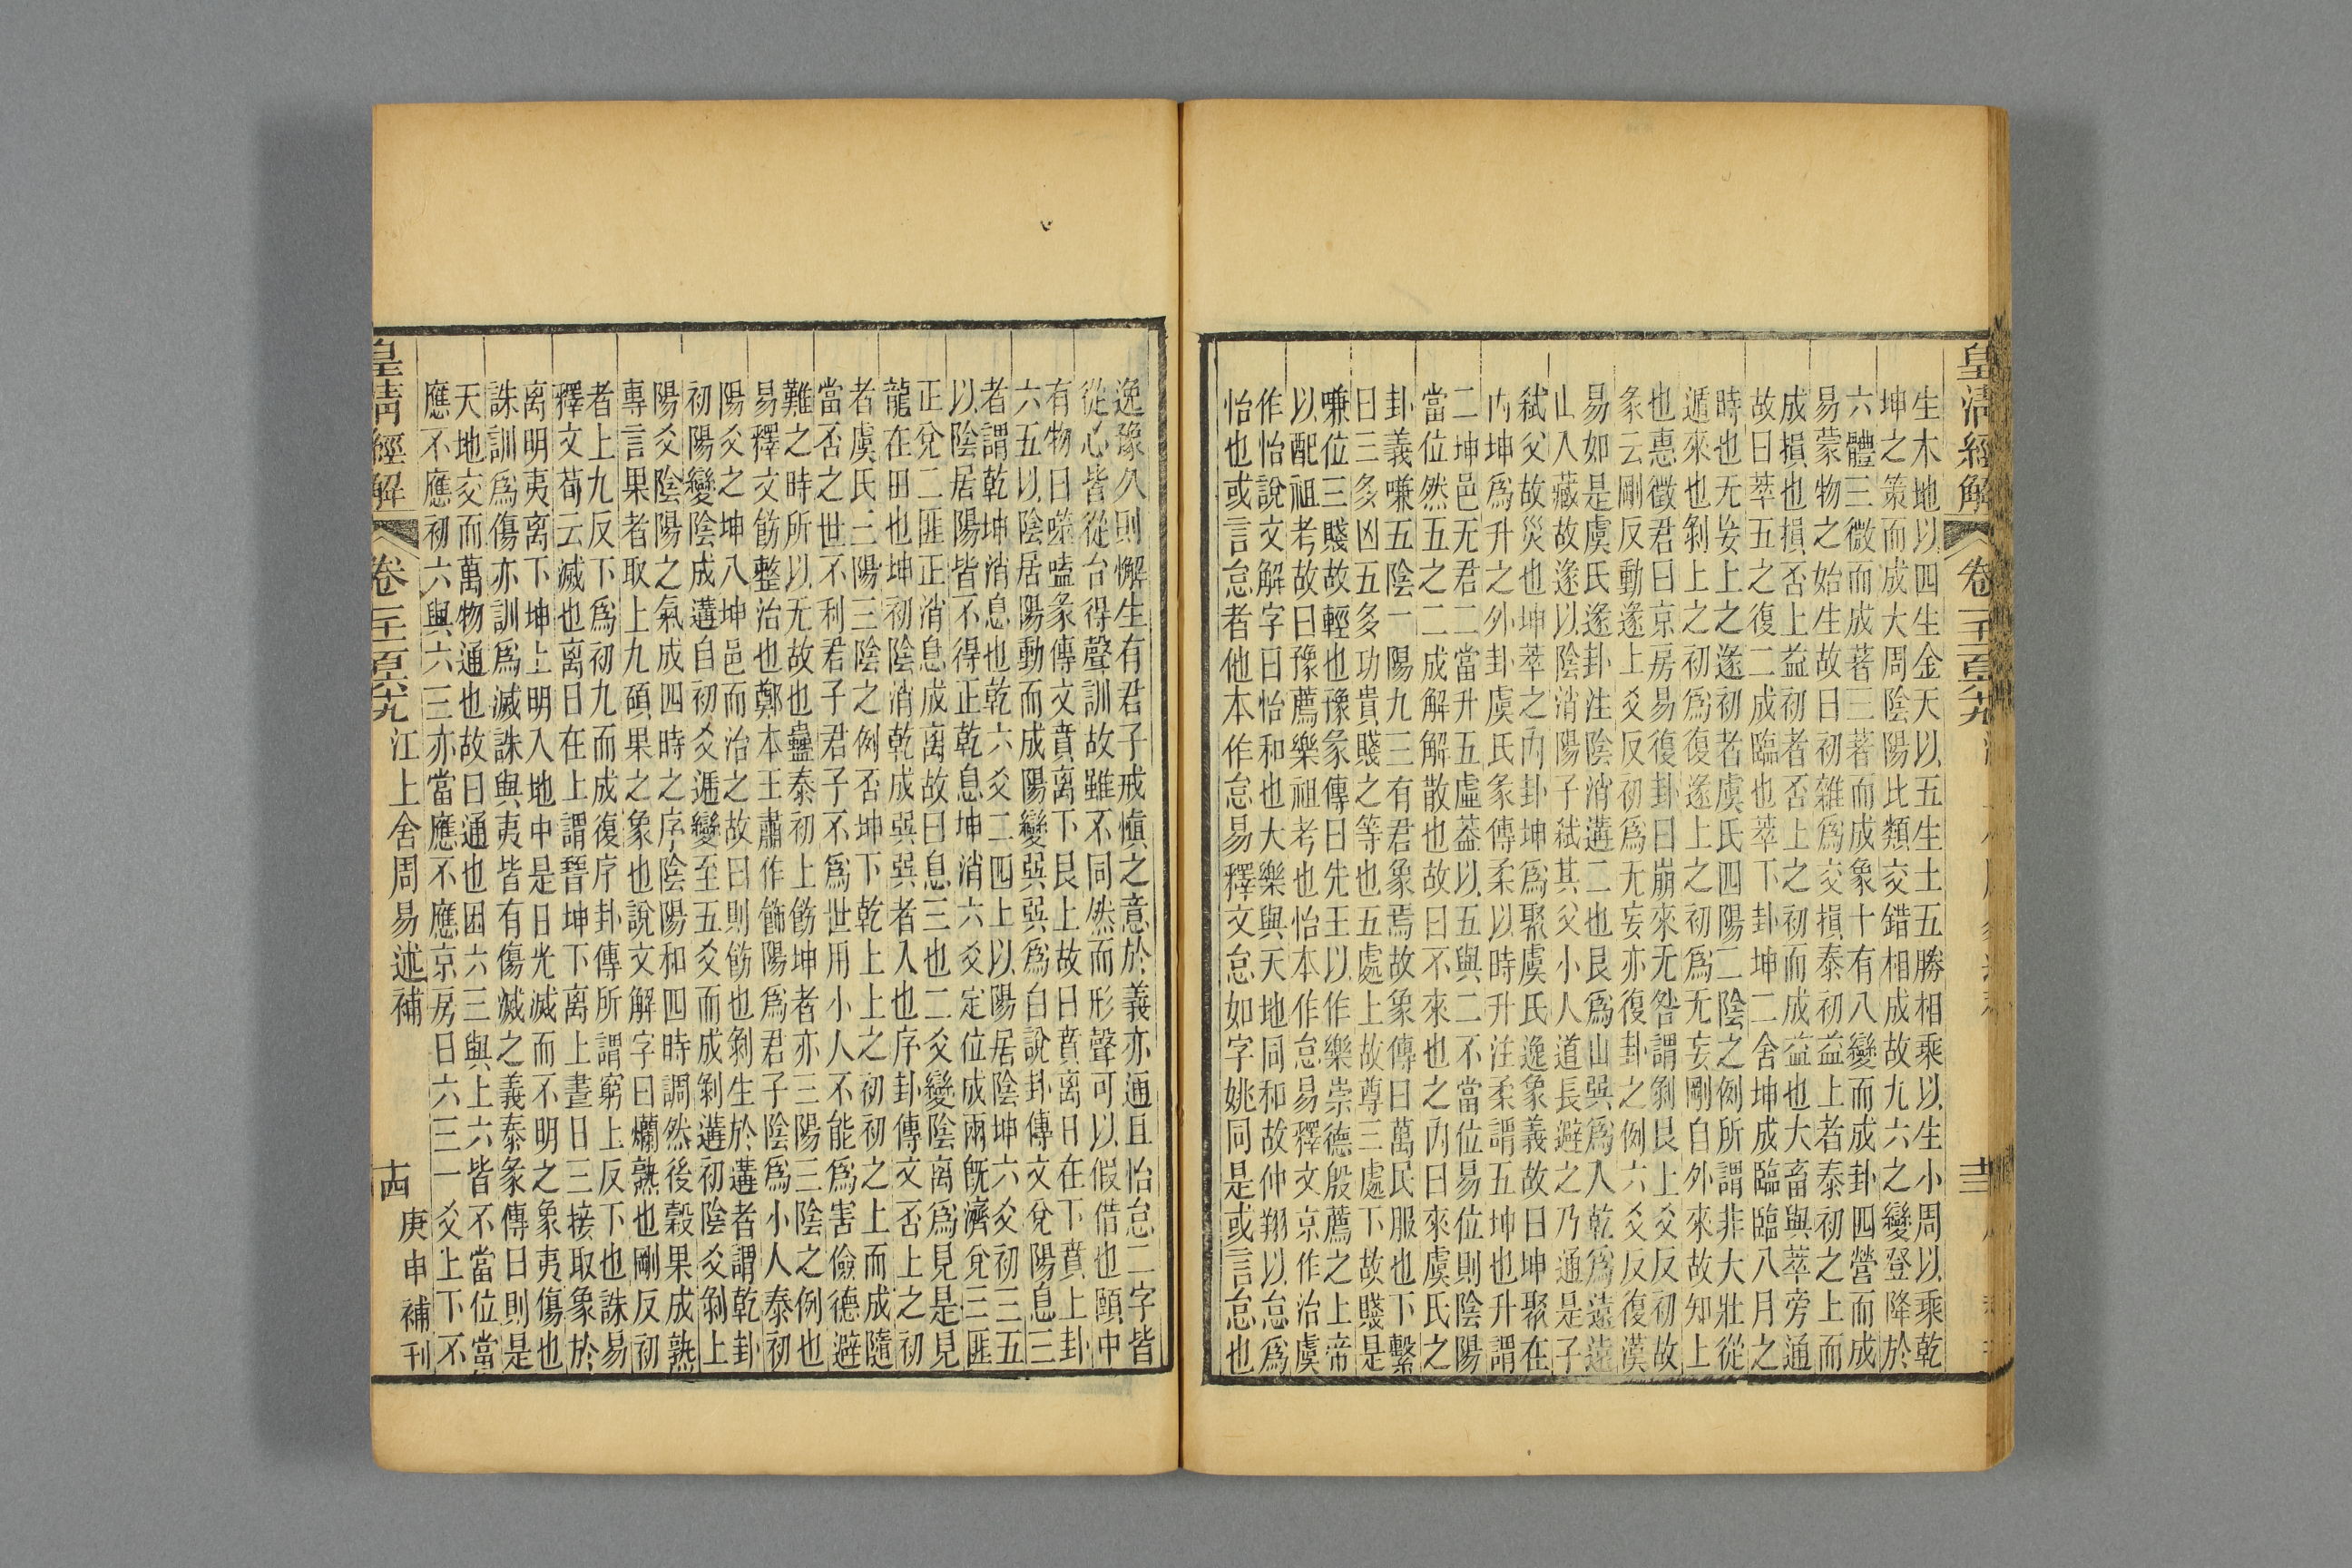 皇清經解 卷一千二百六十九
生木地以四生金天以五生土五勝相乘以生小周以乘乾
坤之策而成大周陰陽比類交錯相成故九六之變登降於
六體三微而成著三著而成象十有八變而成卦四營而成
易蒙物之始生故曰初雜爲交損泰初益上者泰初之上而
成損也損否上益初者否上之初而成益也大畜與萃旁通
故曰萃五之復二成臨也萃下卦坤二舍坤成臨臨八月之
時也无妄上之遂初者虞氏四陽二陰之例所謂非大壯從
遁來也剝上之初爲復遂上之初爲无妄剛自外來故知上
也惠徵君曰京房易復卦曰崩來无咎謂剝艮上爻反初故
彖云剛反動遂上爻反初爲无妄亦復卦之例六爻反復漢
易如是虞氏遂卦注陰消遘二也艮爲山巽爲入乾爲遠遠
山入藏故遂以陰消陽子弒其父小人道長避之乃通是子
弒父故災也坤萃之內卦坤爲聚虞氏逸象義故曰坤聚在
內坤爲升之外卦虞氏彖傳柔以時升注柔謂五坤也升謂
二坤邑无君二當升五虛葢以五與二不當位易位則陰陽
當位然五之二成解解散也故曰不來也之內曰來虞氏之
卦義嗛五陰一陽九三有君象焉故象傳曰萬民服也下繫
曰三多凶五多功貴賤之等也五處上故尊三處下故賤是
嗛位三賤故輕也豫彖傳曰先王以作樂崇德殷薦之上帝
以配祖考故曰豫薦樂祖考也怡本作怠易釋文京作治虞
作怡說文解字曰怡和也大樂與天地同和故仲翔以怠爲
怡也或言怠者他本作怠易釋文怠如字姚同是或言怠也
逸豫久則懈生有君子戒愼之意於義亦通且怡怠二字皆
從心皆從台得聲訓故雖不同然而形聲可以假借也頤中
有物曰噬嗑彖傳文賁离下艮上故曰賁离日在下賁上卦
六五以陰居陽動而成陽變巽巽爲白說卦傳文兌陽息三
者謂乾坤消息也乾六爻二四上以陽居陰坤六爻初三五
以陰居陽皆不得正乾息坤消六爻定位成兩旣濟兌三匪
正兌二匪正消息成离故曰息三也二爻變陰离爲見是見
龍在田也坤初陰消乾成巽巽者入也序卦傳文否上之初
者虞氏三陽三陰之例否坤下乾上上之初初之上而成隨
當否之世不利君子君子不爲世用小人不能爲害儉德避
難之時所以无故也蠱泰初上飭坤者亦三陽三陰之例也
易釋文飭整治也鄭本王肅作飾陽爲君子陰爲小人泰初
陽爻之坤八坤邑而治之故曰則飭也剝生於遘者謂乾卦
初陽變陰成遘自初爻遞變至五爻而成剝遘初陰爻剝上
陽爻陰陽之氣成四時之序陰陽和四時調然後穀果成熟
專言果者取上九碩果之象也說文解字曰爤熟也剛反初
者上九反下爲初九而成復序卦傳所謂窮上反下也誅易
釋文荀云滅也离日在上謂晉坤下离上晝日三接取象於
离明夷离下坤上明入地中是日光滅而不明之象夷傷也
誅訓爲傷亦訓爲滅誅與夷皆有傷滅之義泰彖傳曰則是
天地交而萬物通也故曰通也困六三與上六皆不當位當
應不應初六與六三亦當應不應京房曰六三一爻上下不
皇清經解 卷一千二百六十九 江上舍周易述補 十四 庚申補刊